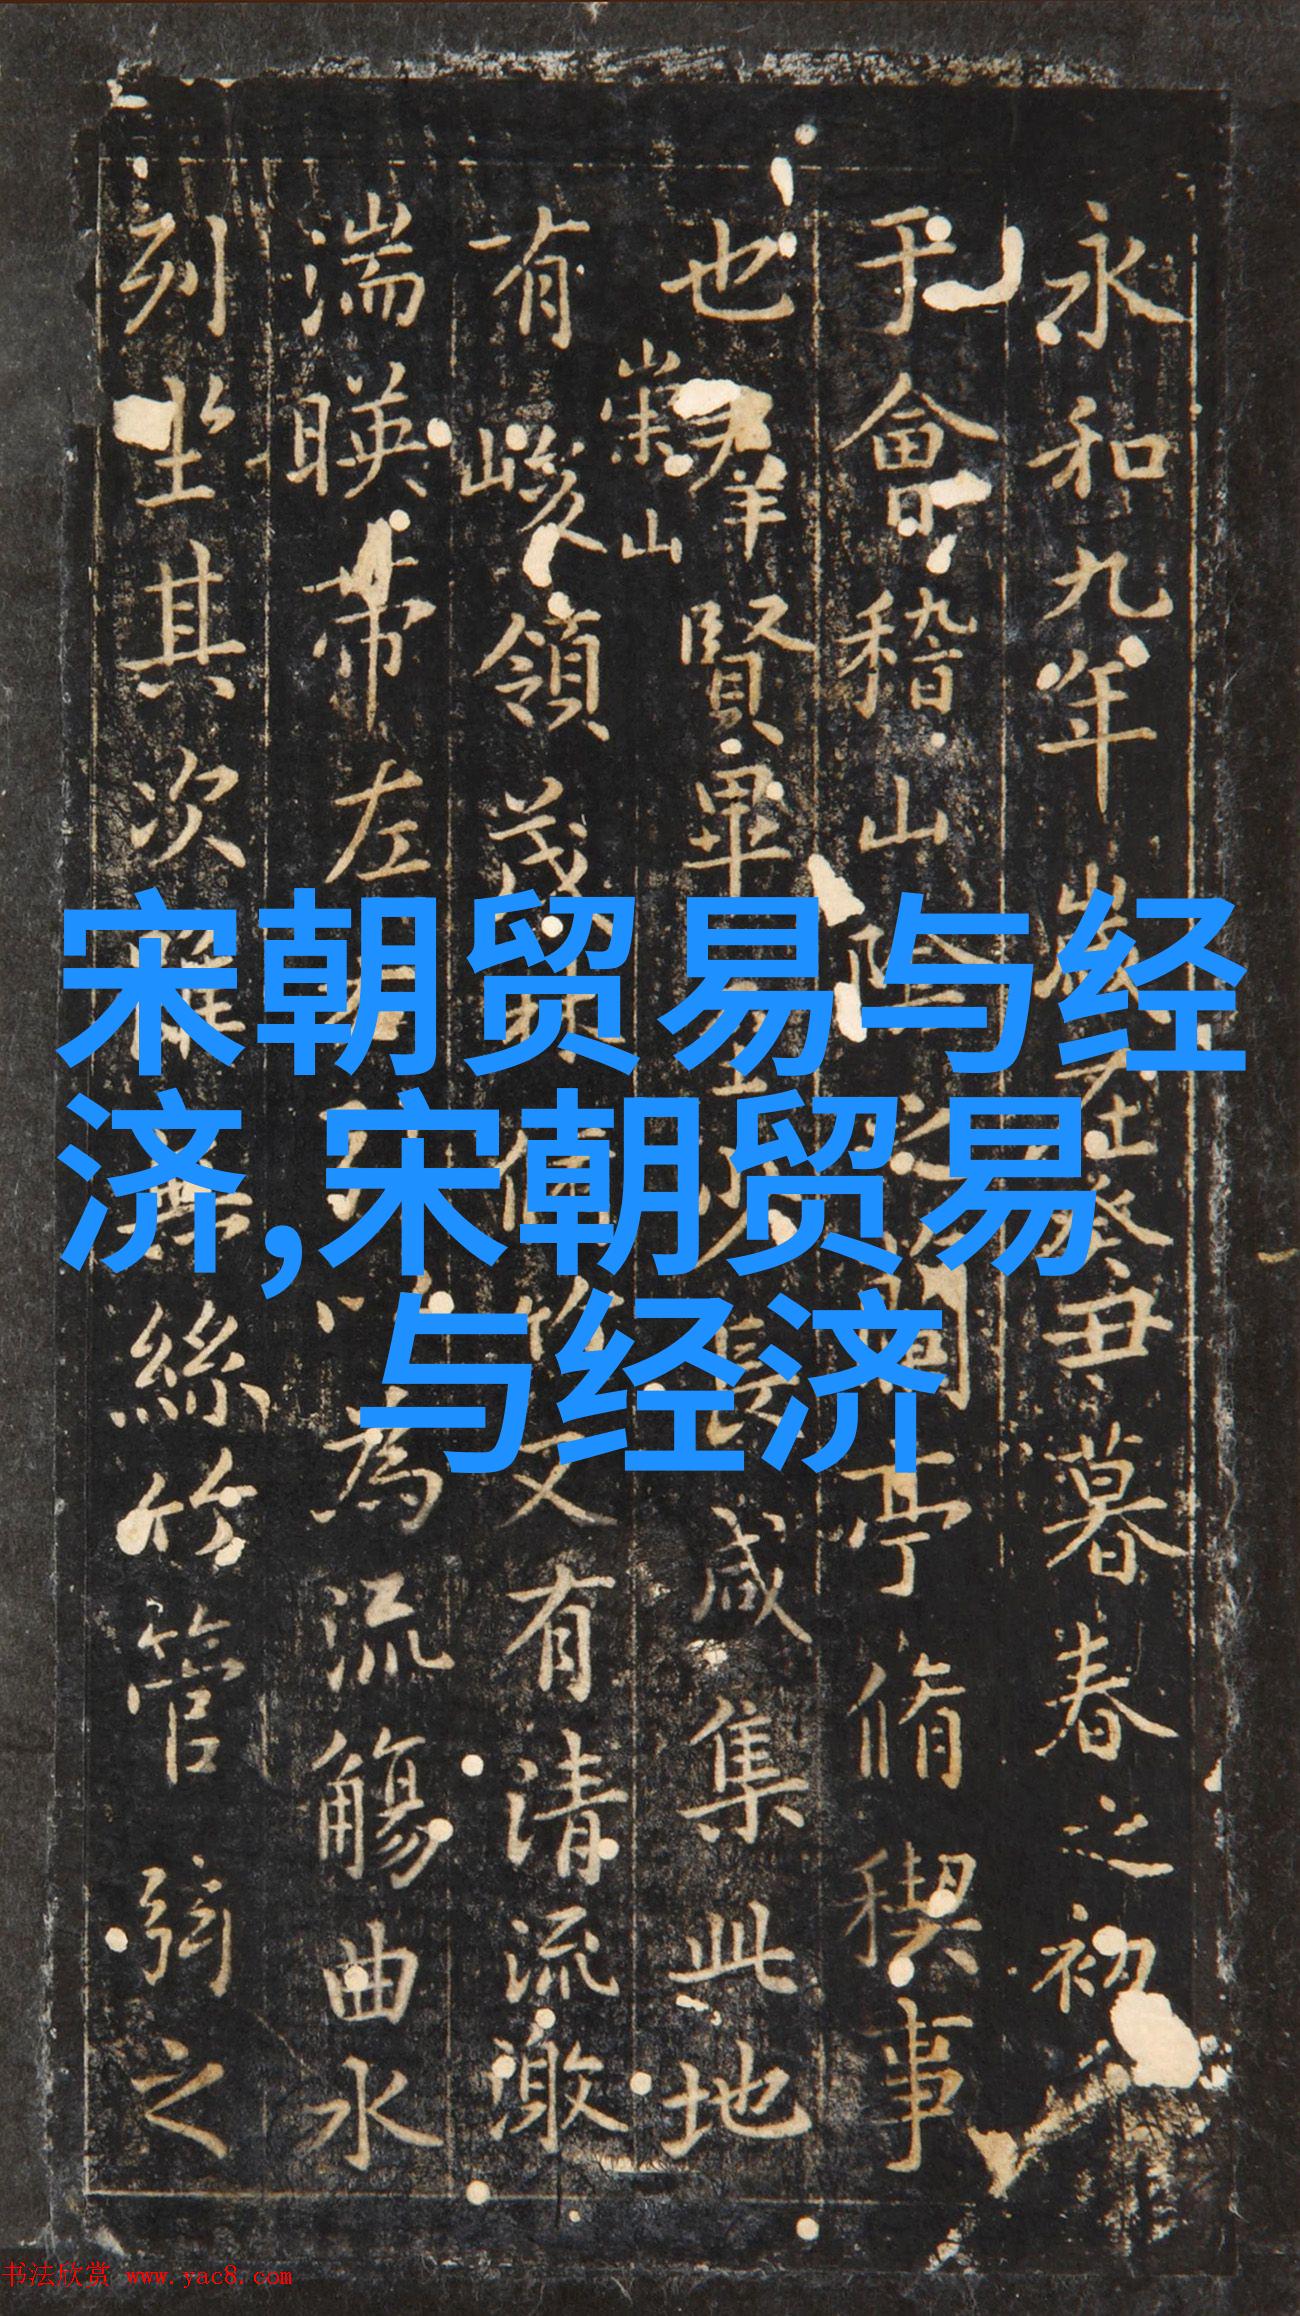 宋朝贸易与经
济,宋朝贸易
与经济
永和九年歲在癸丑暮春之初
于會稽山陰之蘭亭脩稧事
也羣賢畢至少長咸集此地
崇山
有峻領茂林脩竹又有清流激
湍暎帶左右引以為流觴曲水
列坐其次雖無絲竹管弦之
书法欣赏 www.yac8.com